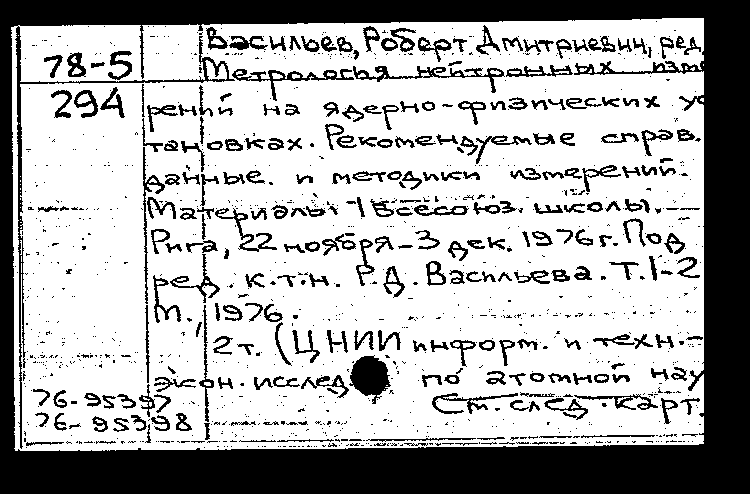 Васильев, Роберт Дмитриевич, ред.
78-5
Метрология нейтронных изме
294
рений на ядерно-физических ус
тановках. Рекомендуемые справ.
данные. и методики измерений.
Материалы I Всесоюз. школы. —
Рига, 22 ноября – 3 дек. 1976 г. Под
ред. к.т.н. Р.Д. Васильева. Т. 1-2
М., 1976.
2 т. (ЦНИИ информ. и техн.-
экон. исслед по атомной нау
76-95397
76-95398
См. след. карт.